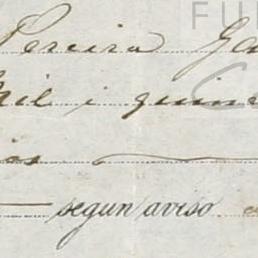 Pereira Ga
Mil i quin
segun aviso